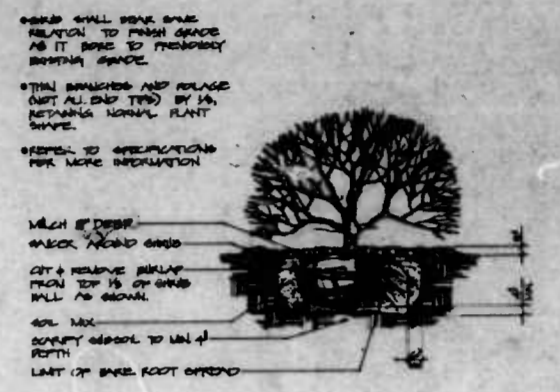 • SHRUB SHALL BEAR SAME
RELATION TO FINISH GRADE
AS IT BORE TO PREVIOUSLY
EXISTING GRADE.
• THIN BRANCHES AND FOLIAGE
(NOT ALL END TIPS) BY 1/3,
RETAINING NORMAL PLANT
SHAPE.
• REFER TO SPECIFICATIONS
FOR MORE INFORMATION
MULCH DEEP
SAUCER AROUND SHRUB
CUT & REMOVE BURLAP
FROM TOP 1/3 OF SHRUB
BALL AS SHOWN.
SOIL MIX
SCARIFY SUBSOIL TO MIN 4"
DEPTH
LIMIT OF BARE ROOT SPREAD